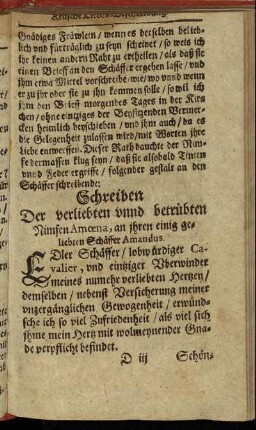 Keusche Liebes-Beschreibung.
Gnädiges Fräwlein / wenn es derselben belieb-
lich vnd fürträglich zu seyn scheinet / so weis ich
ihr keinen andern Raht zu ertheilen / als daß sie
einen Brieff an den Schäffer ergehen lasse / vnd
ihm etwa Mittel vorschreibe / wie / wo vnnd wenn
er zu ihr oder sie zu ihn kommen solle / so wil ich
ihm den Brieff morgendes Tages in der Kir-
chen / ohne einziges der Beysitzenden Vermer-
cken heimlich beyschieben / vnd ihm auch / da es
die Gelegenheit zulassen wird / mit Worten ihre
Liebe entwerffen. Dieser Rath dauchte der Nim-
fe dermassen klug seyn / daß sie alsobald Tinten
vnnd Feder ergriffe / folgender gestalt an den
Schäffer schreibende:
Schreiben
Der verliebten vnnd betrübten
Nimfen Amœna, an jhren einig ge-
liebten Schäffer Amandus.
EDler Schäffer / lobwürdiger Ca-
valier, vnd eintziger Vberwinder
meines numehr verliebten Hertzen /
demselben / nebenst Versicherung meiner
vnzergänglichen Gewogenheit / erwünd-
sche ich so viel Zufriedenheit / als viel sich
ihme mein Hertz mit wolmeynender Gna-
de verpflicht befindet.
D iij Schön-